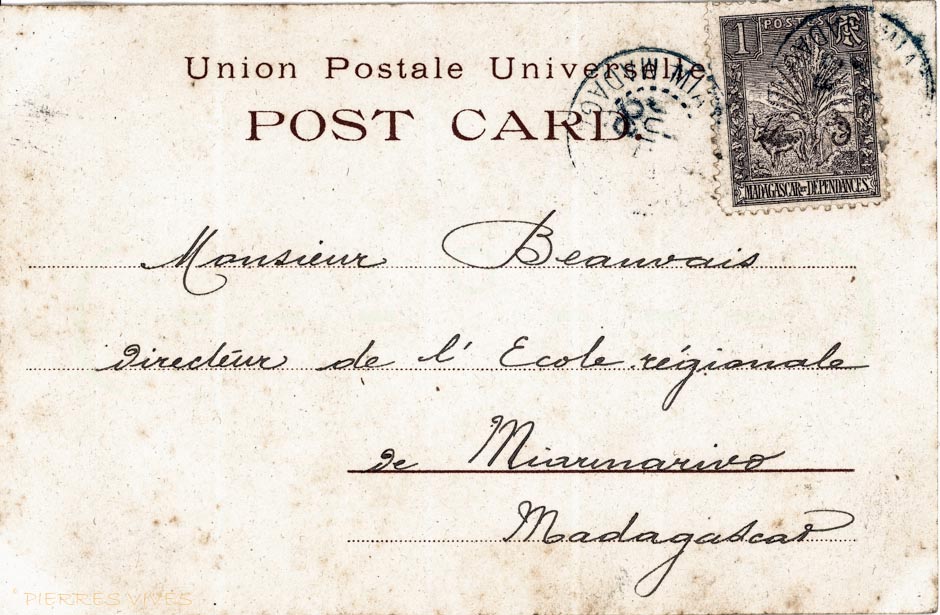 Union Postale Universelle
POST CARD.
1 POSTES RF
MADAGASCAR ET DÉPENDANCES
MADAG
MADAG
Monsieur Beauvais
Directeur de l' Ecole régionale
de Miarinarivo
Madagascar
© PIERRES VIVES